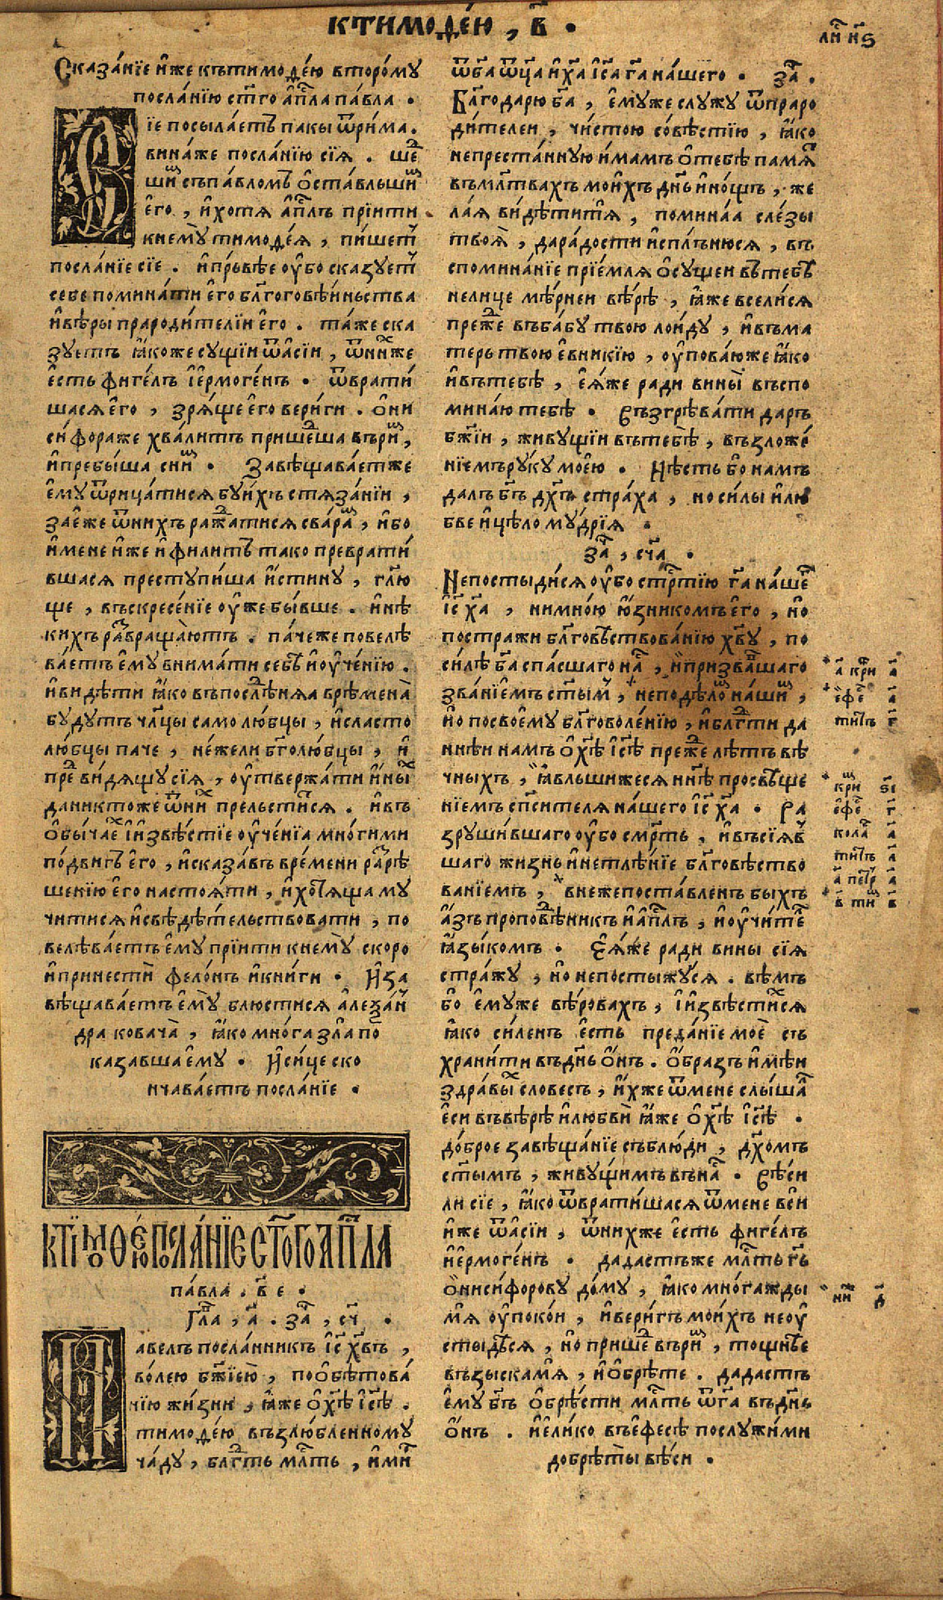 ктимоѳе́ю , в҃ ·
ли҃ н҃ѕ
Сказа́нїе и҆́же къ тимоѳе́ю второ́мꙋ
посла́нїю ст҃го а҆пⷭ҇ла па́вла ·
Вїе посыла́етъ пакы ѿ ри́ма .
вина́же посла́нїю сїѧ̀ . шеⷣ
шиⷨ съ па́вломъ ѻ҆ста́вльшиⷨ
є҆го̀ , и҆ хотѧ̀ а҆пⷭ҇лъ прїити
к немꙋ̀ тимоѳе́ѧ , пи́шетъ
посла́нїе сїе . и҆ пръвѣе оу҆́бо сказꙋетъ
себе помина́ти є҆го̀ бл҃гоговѣиньства
и҆ вѣ́ры прароди́телїи є҆го̀ . та́же ска
зꙋетъ ꙗ҆́коже сꙋщїи ѿ а҆сїи , ѿ ни́хже
є҆сть фиге́лъ і҆ є҆рмоге́нъ · ѿврати́
шасѧ є҆го̀ , зрѧ́ще є҆го̀ вери́ги . ѻ҆ни
си́фораже хва́литъ прише́дша въ ри́мъ ,
и҆ пребы́ша с ни́мъ · Завѣщава́етже
є҆мꙋ̀ ѿрица́тисѧ бꙋ́ихъ стѧза́нїи ,
зане́же ѿ ни́хъ ража́тисѧ сва́раⷨ , и҆́бо
и҆мене́и же и҆ фили́тъ тако преврати́
вшасѧ престꙋпи́ша и҆́стинꙋ , гл҃ю
ще , въскресе́нїе оу҆же бы́вше . и҆ нѣ́
кихъ развраща́ютъ . па́чеже повелѣ
ва́етъ є҆мꙋ̀ внима́ти себѣ̀ и҆ оу҆че́нїю .
и҆ ви́дѣти ꙗ҆́ко въ послѣ́днѧѧ времена̀
бꙋ́дꙋтъ чл҃цы само лю́бцы , и҆ сласто
лю́бцы паче , не́жели бг҃олю́бцы , и҆
преⷣ ви́дѧщꙋ сїѧ̀ , оу҆твержа́ти и҆ны́хъ
да никто́же ѿ ни́хъ прельсти́тсѧ . и҆ въ
ѻ҆бы́чае і҆ и҆звѣ́стїе оу҆че́нїѧ мно́гими
по́двигъ є҆го̀ , и҆ сказа́въ вре́мени разрѣ
ше́нїю є҆го̀ настоѧ́ти , и҆ хотѧ́ща мꙋ
чи́тисѧ и҆ свѣдѣ́тельствовати , по
велѣва́етъ є҆мꙋ̀ прїити к немꙋ̀ скоро
и҆ принестѝ фело́нъ и҆ кни́ги · И҆ за
вѣщава́етъ є҆мꙋ̀ блюсти́сѧ а҆леѯа́н
дра ковача̀ , ꙗ҆́ко мно́га зла̀ по
каза́вша є҆мꙋ · И҆ си́це ско
нчава́етъ посла́нїе ·
К ТИМОѲЕ́Ю ПОСЛА́НЇЕ СТ҃ГО А҆Пⷭ҇ЛА
па́вла . в҃ е ·
Гла҃ , а҃ · за҃ , сч҃ ·
Павелъ посла́нникъ і҆с҃ хв҃ъ ,
во́лею бж҃їею , по ѻ҆бѣтова́
нїю жи́зни , ꙗ҆́же ѻ҆ хⷭ҇ѣ і҆с҃ѣ .
тимоѳе́ю възлю́бленномꙋ
ча́дꙋ , блгⷣть млⷭ҇ть , и҆ миⷬ҇
ѿ бг҃а ѿц҃а и҆ ха҃ і҆са҃ га҃ на́шего · за҃ ·
Бл҃годарю̀ ба҃ , є҆мꙋже слꙋжꙋ̀ ѿ праро
ди́телеи , чи́стою со́вѣстїю , ꙗ҆́ко
непреста́ннꙋю и҆́мамъ ѻ҆ тебѣ̀ па́мѧⷮ
въ млт҃вахъ мои́хъ дн҃ь и҆ но́щь , же
ла́ѧ ви́дѣти тѧ̀ , помина́ѧ сле́зы
твоѧ̀ , да ра́дости и҆спл҃ъню́сѧ , въ
спомина́нїе прїе́млѧ ѻ҆ сꙋщеи въ тебѣ̀
нелицемѣ́рнеи вѣ́рѣ , ꙗ҆́же всели́сѧ
пре́жⷣе въ ба́бꙋ твою лои́дꙋ , и҆ въ ма
терь твою є҆вники́ю , оу҆пова́юже ꙗ҆́ко
и҆ въ тебѣ̀ , є҆ѧ́же ради вины̀ въспо
мина́ю тебѣ · Възгрѣва́ти даръ
бж҃їи , живꙋщїи въ тебѣ̀ , възложе́
нїемъ рꙋ́кꙋ мое́ю · Нѣсть бо намъ
далъ бг҃ъ дх҃ъ стра́ха , но си́лы и҆ лю
бве и҆ цѣломꙋ́дрїѧ ·
за҃ , сч҃а ·
Не постыди́сѧ оу҆бо стрⷭ҇тїю га҃ на́шеⷢ҇
і҆с҃ ха҃ , ни мно́ю ю҆́зникомъ є҆го̀ , но
постражѝ бл҃говѣствова́нїю хв҃ꙋ , по
си́лѣ ба҃ спа́сшаго на́съ , и҆ призва́вшаго
зва́нїемъ ст҃ы́мъ , не по дѣло́мъ на́шиⷨ ,
но по своемꙋ̀ бл҃говоле́нїю , и҆ блгⷣти да
ннѣи намъ ѻ҆ хⷭ҇ѣ і҆с҃ѣ пре́жⷣе лѣ́тъ вѣ
чныхъ , ꙗ҆́вльшижесѧ нн҃ѣ просвѣще
нїемъ сп҃си́телѧ на́шего і҆с҃ ха҃ · Ра
зрꙋши́вшаго оу҆бо сме́рть , и҆ въсїѧ́в
шаго жи́знь и҆ нетлѣ́нїе бл҃говѣство
ванїемъ , в не́же поста́вленъ бы́хъ
а҆́зъ проповѣ́дникъ и҆ а҆пⷭ҇лъ , и҆ оу҆чи́тель
ꙗ҆зы́комъ · Е҆ѧ́же ради вины сїѧ̀
стра́жꙋ , но не постыжꙋ́сѧ . вѣмъ
бо є҆мꙋже вѣ́ровахъ , і҆ и҆звѣсти́хсѧ
ꙗ҆́ко си́ленъ є҆́сть преда́нїе моѐ съ
храни́ти въ дн҃ь ѻ҆́нъ . Ѻ҆́бразъ и҆мѣ́и
здра́выхъ слове́съ , и҆́хже ѿ мене слы́шалъ
є҆си въ вѣ́рѣ и҆ любви̏ ꙗ҆́же ѻ҆ хⷭ҇ѣ і҆с҃ѣ ·
до́брое завѣща́нїе съблюди , дх҃омъ
ст҃ымъ , живꙋщимъ въ на́съ · Вѣси
ли сїе , ꙗ҆́ко ѿврати́шасѧ ѿ мене вси
и҆́же ѿ а҆сїи , ѿ ни́хже є҆́сть фиге́лъ
и҆ е҆рмоге́нъ · да да́стьже млⷭ҇ть гь҃
ѻ҆ниси́форовꙋ до́мꙋ , ꙗ҆́ко мно́гажды
мѧ̀ оу҆поко́и , и҆ вери́гъ мои́хъ не оу҆
стыдѣ́сѧ , но прише́дъ въ ри́мъ , тощнѣ́е
възыска мѧ̀ , и҆ ѻ҆брѣ́те . да да́стъ
є҆мꙋ бг҃ъ ѻ҆брѣ́сти млⷭ҇ть ѿ га҃ въ дн҃ь
ѻ҆́нъ . и҆ели́ко въ е҆фе́сѣ послꙋжи́ ми
добрѣ́е ты̀ вѣ́си ·
а҃ кри а҃
є҆фе а҃
титъ г҃
кри ѕе
є҆фе г҃
кола а҃
титъ а҃
а҃ петр а҃
в҃ тим в҃
ни҃ж д҃